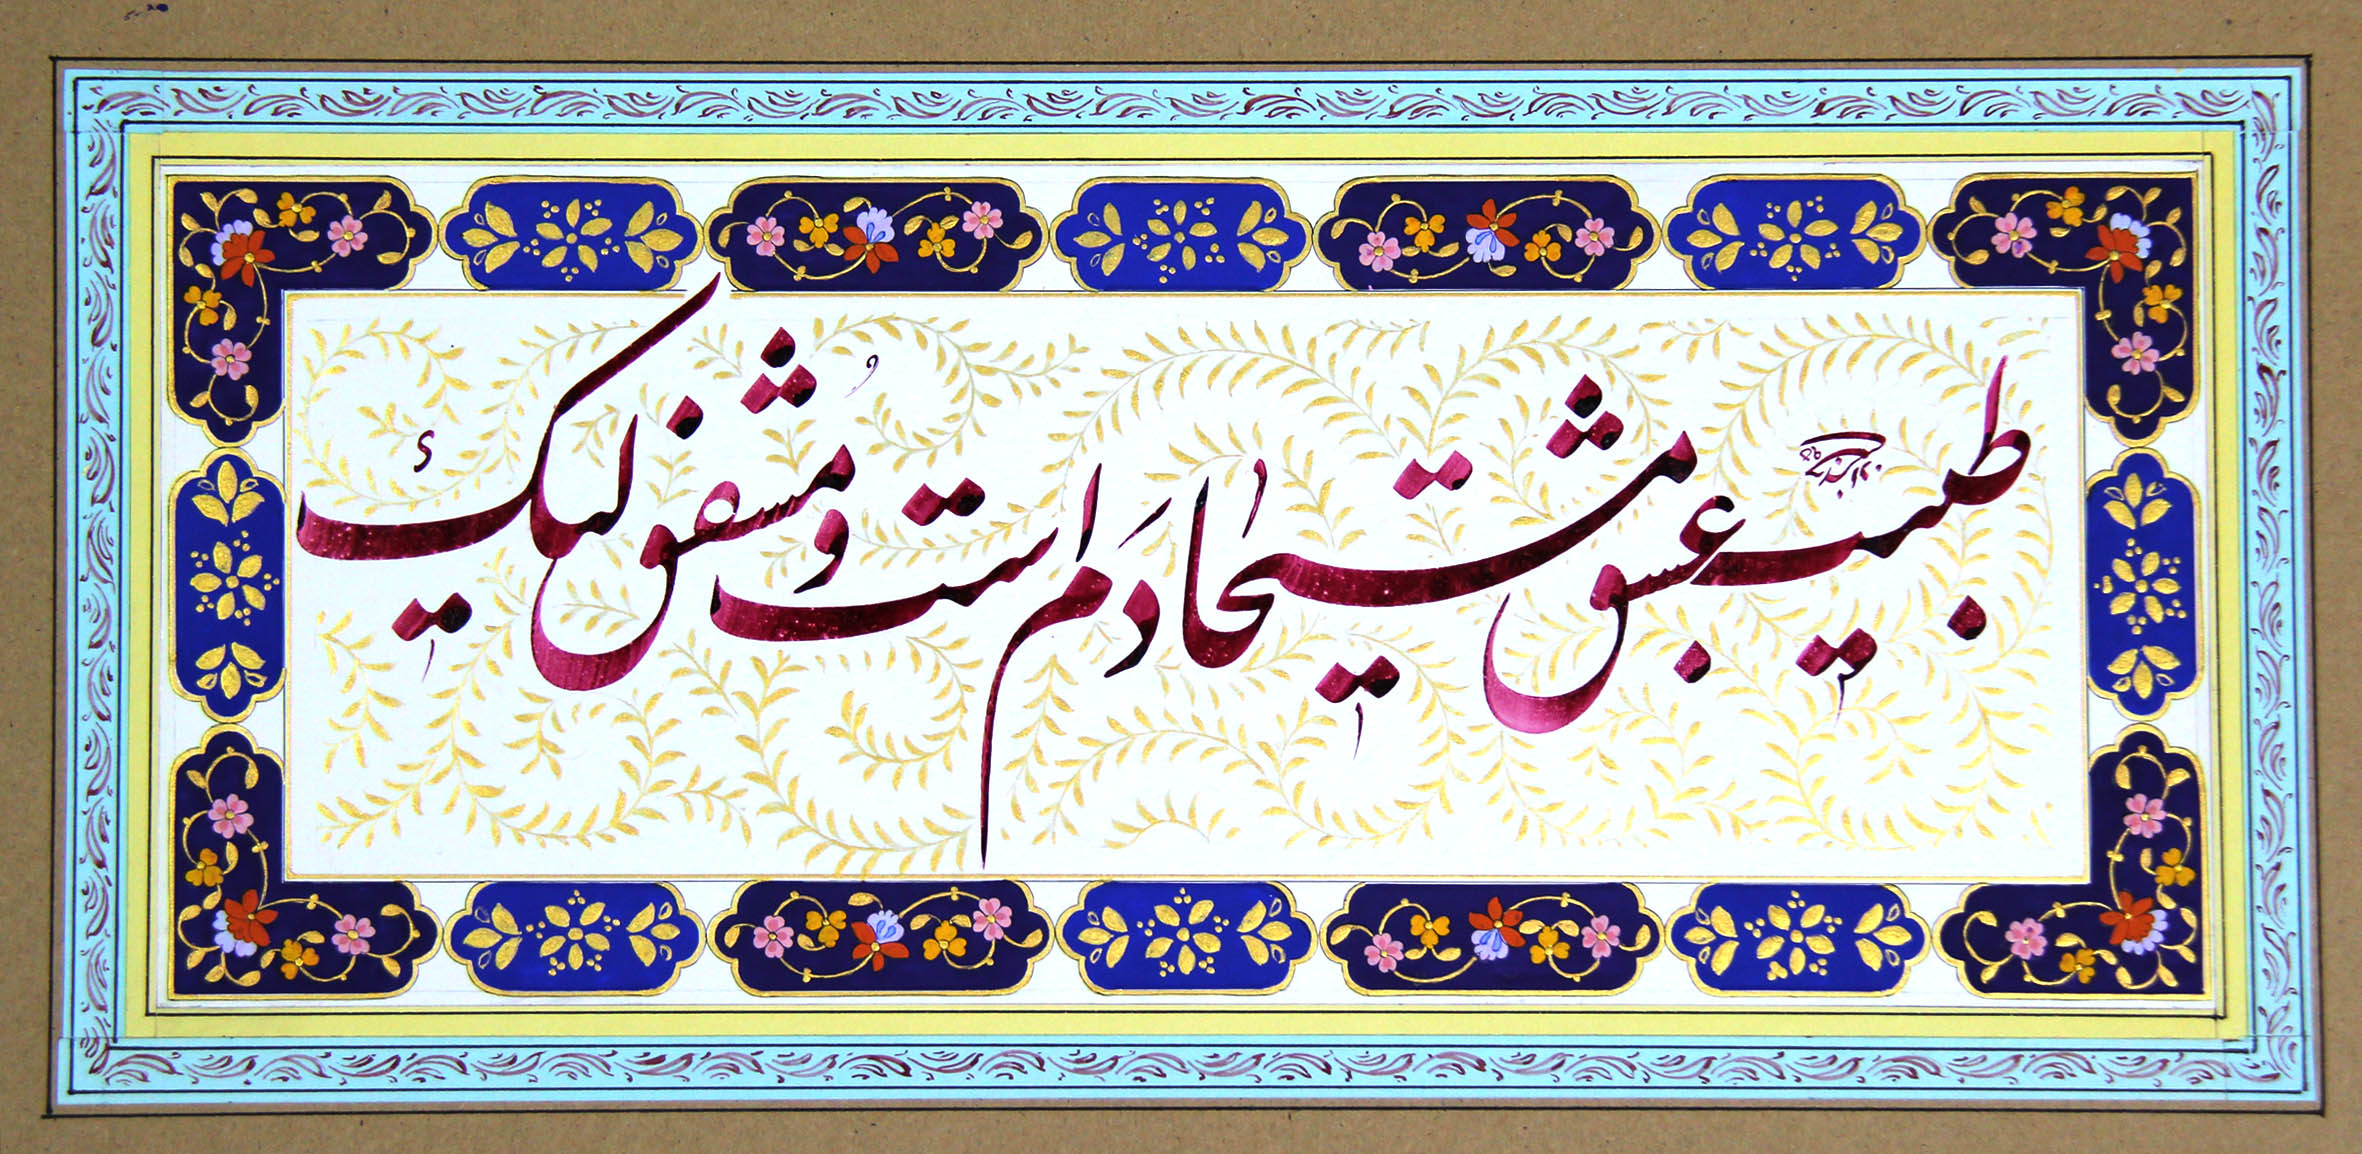 طبیب عشق مسیحادم است و مشفق لیک